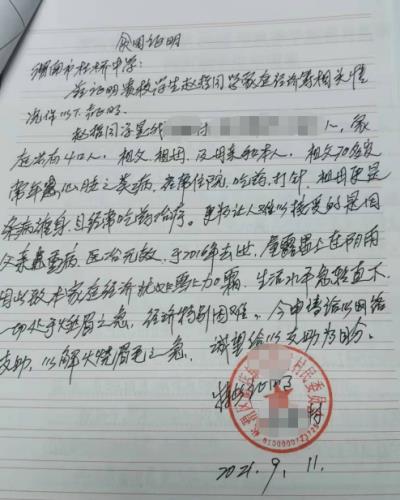 贫困证明
湖南省桂桥中学:
兹证明贵校学生赵哲同学家庭经济等相关情
况作以下证明。
赵哲同学是我 村 人, 家
庭共有4口人, 祖父、祖母、及母亲和本人, 祖父70多岁
常年患心脏之类病, 在常住院, 吃药、打针, 祖母更是
疾病缠身, 且经常吃药治疗。更为让人难以接受的是因
父亲患重病, 医治无效, 于2016年去世, 屋漏遇上连阴雨
因此致本家庭经济就如雪上加霜, 生活水平急转直下
一切处于燃眉之急, 经济特别困难。今申请给以网络
支助, 以解火烧眉毛之急, 诚望给以支助为盼。
特此证明
村民委员
村
2021.9.11.